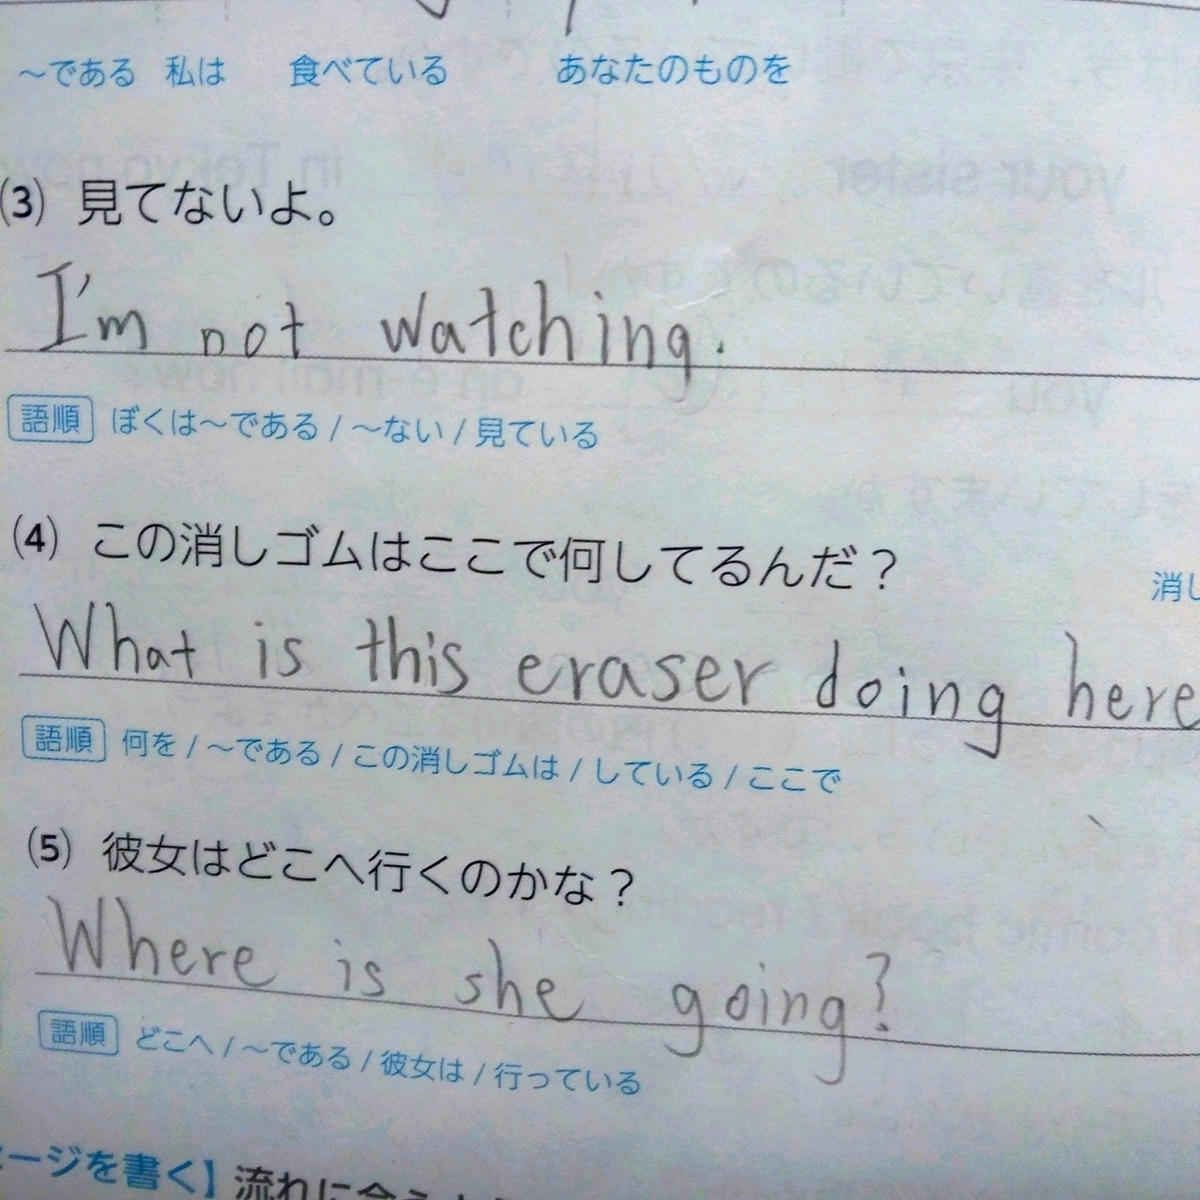 ～である 私は 食べている あなたのものを
(3) 見てないよ。
I'm not watching.
語順 ぼくは～である / ～ない / 見ている
(4) この消しゴムはここで何してるんだ？
消し
What is this eraser doing here
語順 何を / ～である / この消しゴムは / している / ここで
(5) 彼女はどこへ行くのかな？
Where is she going?
語順 どこへ / ～である / 彼女は / 行っている
ージを書く】流れに合う